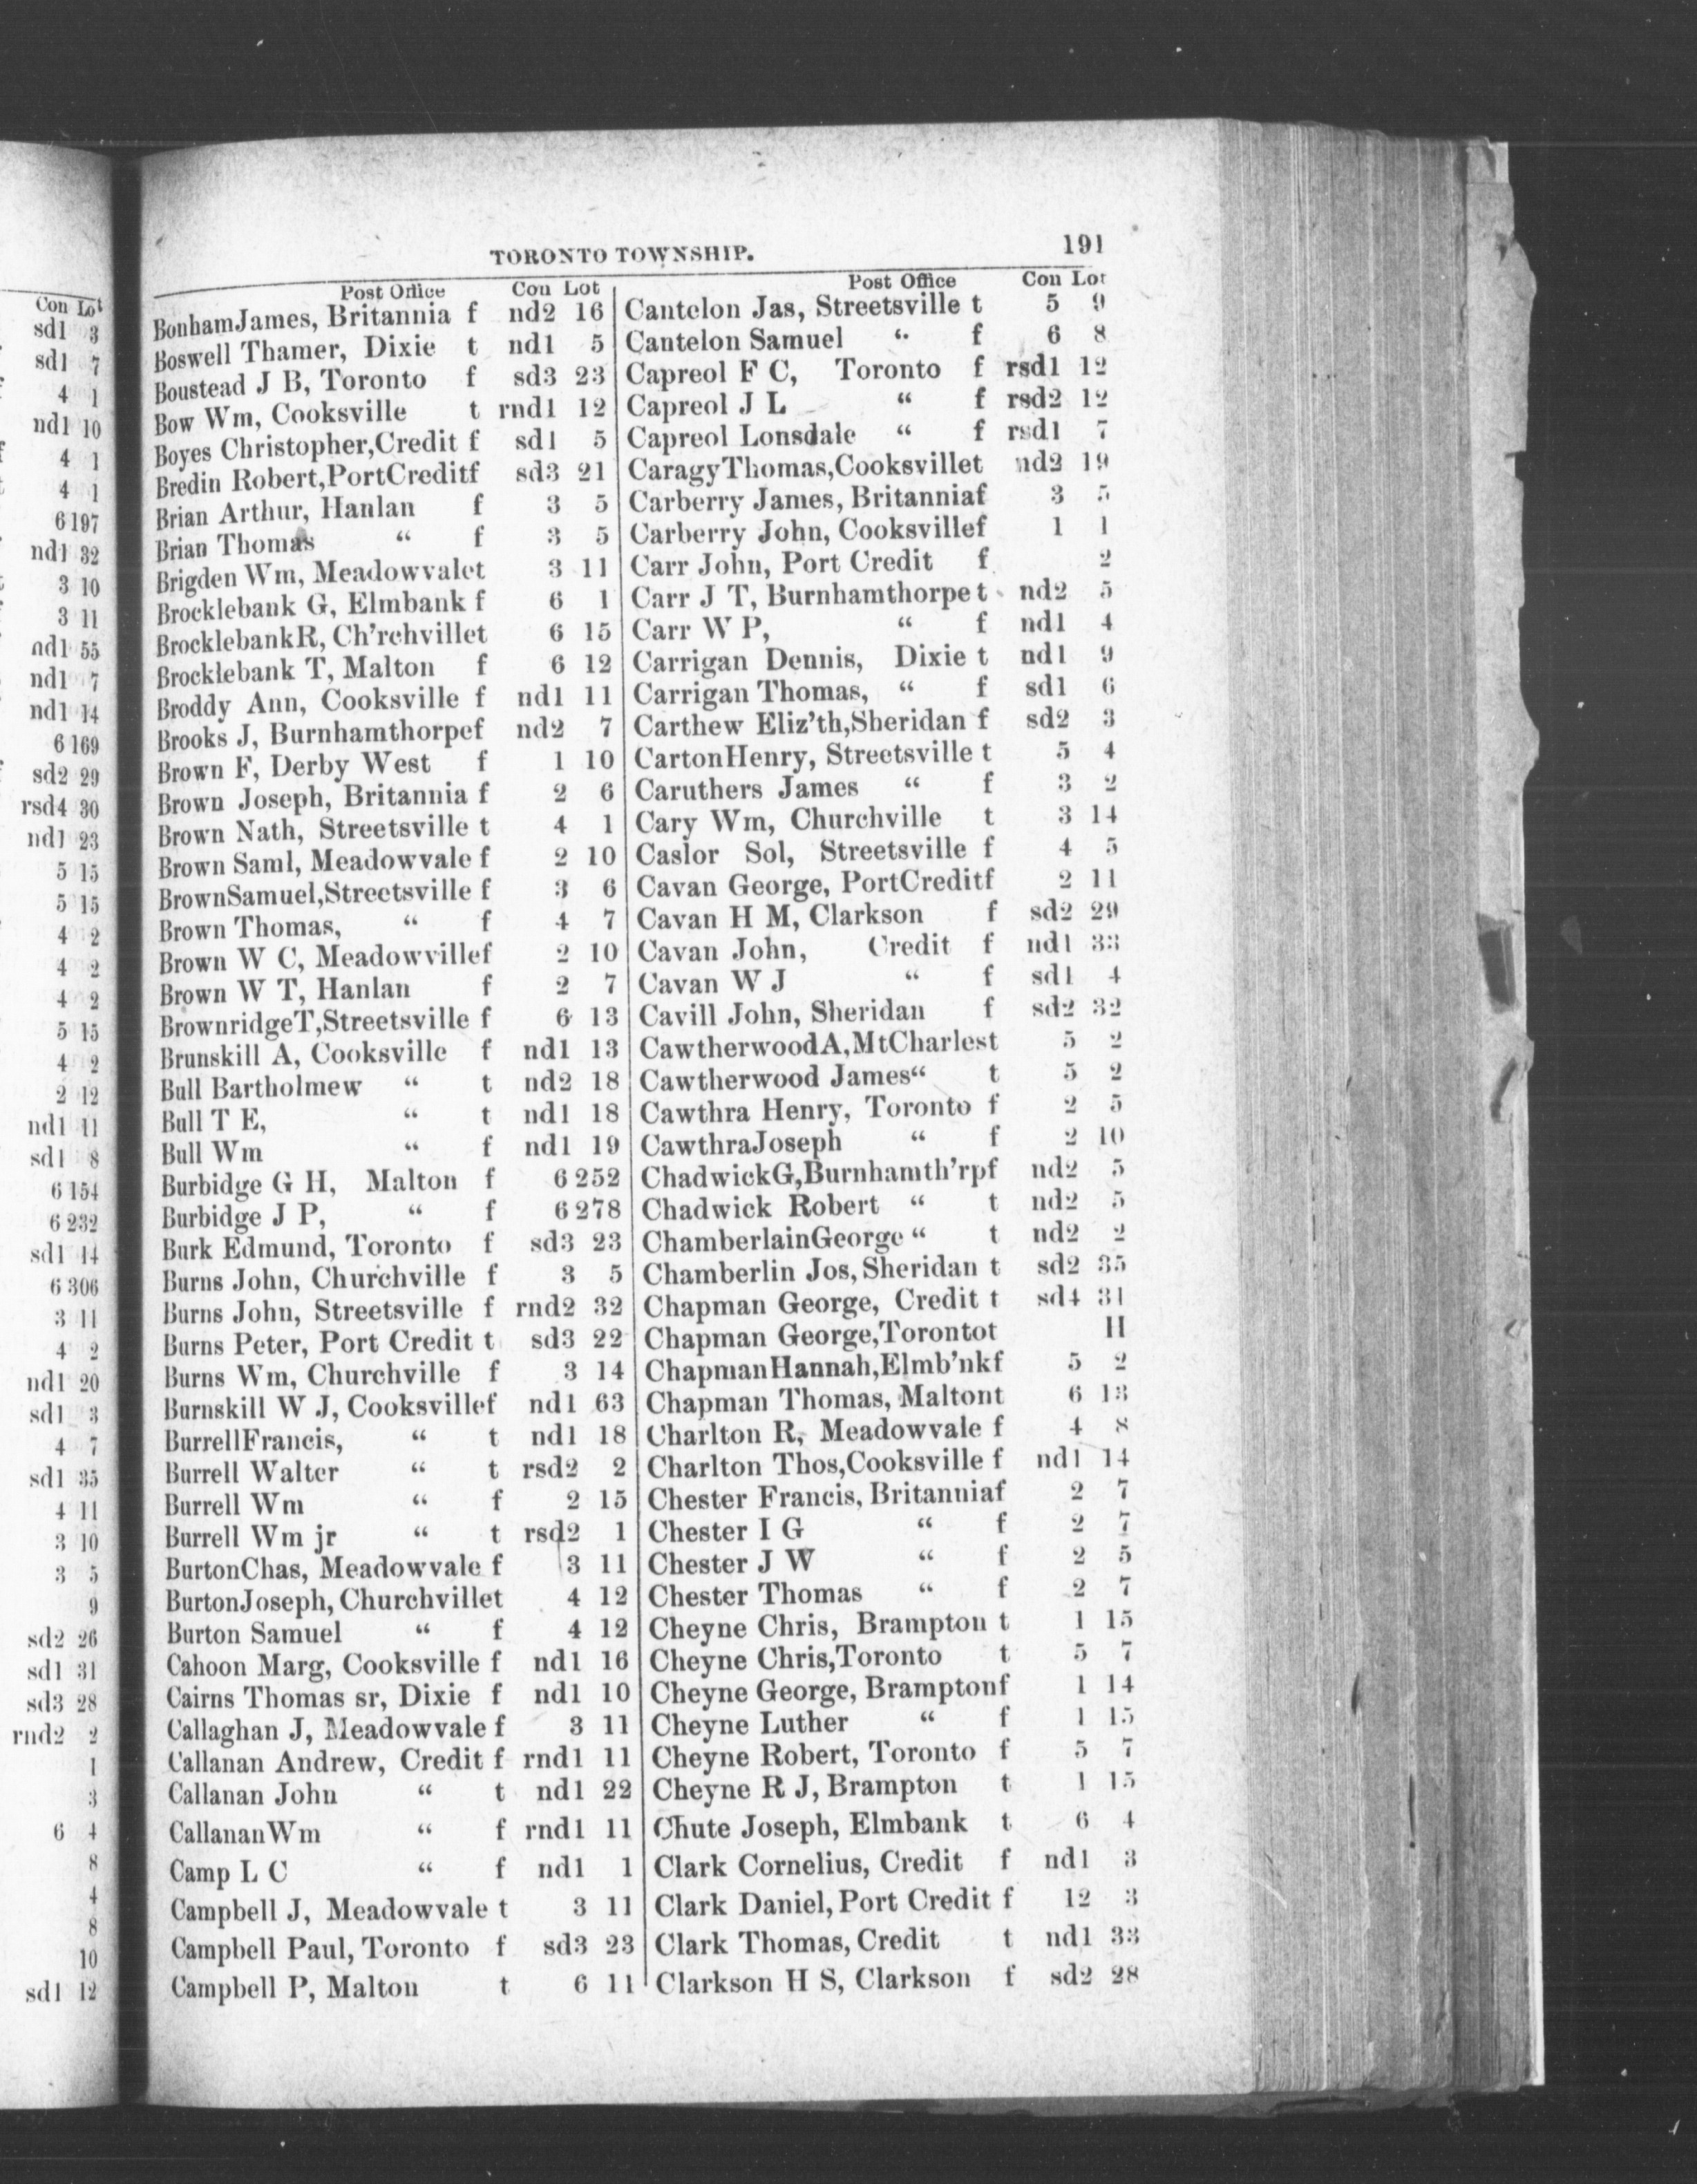 Con Lot
sd1 3
sd1 7
4 1
nd1 10
4 1
4 1
6 197
nd1 32
3 10
3 11
nd1 55
nd1 7
nd1 14
6 169
sd2 29
rsd4 30
nd1 23
5 15
5 15
4 2
4 2
4 2
5 15
4 2
2 12
nd1 11
sd1 8
6 154
6 232
sd1 14
6 306
3 11
4 2
nd1 20
sd1 3
4 7
sd1 35
4 11
3 10
3 5
9
sd2 26
sd1 31
sd3 28
rnd2 2
1
3
6 4
8
4
8
10
sd1 12
TORONTO TOWNSHIP. 191
Post Office Con Lot
BonhamJames, Britannia f nd2 16
Boswell Thamer, Dixie t nd1 5
Boustead J B, Toronto f sd3 23
Bow Wm, Cooksville t rnd1 12
Boyes Christopher,Credit f sd1 5
Bredin Robert,PortCreditf sd3 21
Brian Arthur, Hanlan f 3 5
Brian Thomas “ f 3 5
Brigden Wm, Meadowvalet 3 11
Brocklebank G, Elmbank f 6 1
BrocklebankR, Ch'rchvillet 6 15
Brocklebank T, Malton f 6 12
Broddy Ann, Cooksville f nd1 11
Brooks J, Burnhamthorpef nd2 7
Brown F, Derby West f 1 10
Brown Joseph, Britannia f 2 6
Brown Nath, Streetsville t 4 1
Brown Saml, Meadowvale f 2 10
BrownSamuel,Streetsville f 3 6
Brown Thomas, “ f 4 7
Brown W C, Meadowvillef 2 10
Brown W T, Hanlan f 2 7
BrownridgeT,Streetsville f 6 13
Brunskill A, Cooksville f nd1 13
Bull Bartholmew “ t nd2 18
Bull T E, “ t nd1 18
Bull Wm “ f nd1 19
Burbidge G H, Malton f 6 252
Burbidge J P, “ f 6 278
Burk Edmund, Toronto f sd3 23
Burns John, Churchville f 3 5
Burns John, Streetsville f rnd2 32
Burns Peter, Port Credit t sd3 22
Burns Wm, Churchville f 3 14
Burnskill W J, Cooksvillef nd1 63
BurrellFrancis, “ t nd1 18
Burrell Walter “ t rsd2 2
Burrell Wm “ f 2 15
Burrell Wm jr “ t rsd2 1
BurtonChas, Meadowvale f 3 11
BurtonJoseph, Churchvillet 4 12
Burton Samuel “ f 4 12
Cahoon Marg, Cooksville f nd1 16
Cairns Thomas sr, Dixie f nd1 10
Callaghan J, Meadowvale f 3 11
Callanan Andrew, Credit f rnd1 11
Callanan John “ t nd1 22
CallananWm “ f rnd1 11
Camp L C “ f nd1 1
Campbell J, Meadowvale t 3 11
Campbell Paul, Toronto f sd3 23
Campbell P, Malton t 6 11
Post Office Con Lot
Cantelon Jas, Streetsville t 5 9
Cantelon Samuel “ f 6 8
Capreol F C, Toronto f rsd1 12
Capreol J L “ f rsd2 12
Capreol Lonsdale “ f rsd1 7
CaragyThomas,Cooksvillet nd2 19
Carberry James, Britanniaf 3 5
Carberry John, Cooksvillef 1 1
Carr John, Port Credit f 2
Carr J T, Burnhamthorpe t nd2 5
Carr W P, “ f nd1 4
Carrigan Dennis, Dixie t nd1 9
Carrigan Thomas, “ f sd1 6
Carthew Eliz'th,Sheridan f sd2 3
CartonHenry, Streetsville t 5 4
Caruthers James “ f 3 2
Cary Wm, Churchville t 3 14
Caslor Sol, Streetsville f 4 5
Cavan George, PortCreditf 2 11
Cavan H M, Clarkson f sd2 29
Cavan John, Credit f nd1 33
Cavan W J “ f sd1 4
Cavill John, Sheridan f sd2 32
CawtherwoodA,MtCharlest 5 2
Cawtherwood James“ t 5 2
Cawthra Henry, Toronto f 2 5
CawthraJoseph “ f 2 10
ChadwickG,Burnhamth'rpf nd2 5
Chadwick Robert “ t nd2 5
ChamberlainGeorge “ t nd2 2
Chamberlin Jos, Sheridan t sd2 35
Chapman George, Credit t sd4 31
Chapman George,Torontot 11
ChapmanHannah,Elmb'nkf 5 2
Chapman Thomas, Maltont 6 13
Charlton R, Meadowvale f 4 8
Charlton Thos,Cooksville f nd1 14
Chester Francis, Britanniaf 2 7
Chester I G “ f 2 7
Chester J W “ f 2 5
Chester Thomas “ f 2 7
Cheyne Chris, Brampton t 1 15
Cheyne Chris,Toronto t 5 7
Cheyne George, Bramptonf 1 14
Cheyne Luther “ f 1 15
Cheyne Robert, Toronto f 5 7
Cheyne R J, Brampton t 1 15
Chute Joseph, Elmbank t 6 4
Clark Cornelius, Credit f nd1 3
Clark Daniel, Port Credit f 12 3
Clark Thomas, Credit t nd1 33
Clarkson H S, Clarkson f sd2 28